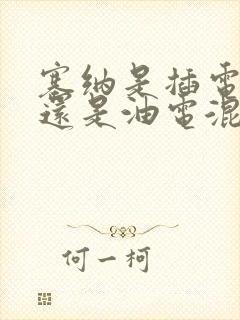 塞纳是插電
還是油電混
何一柯